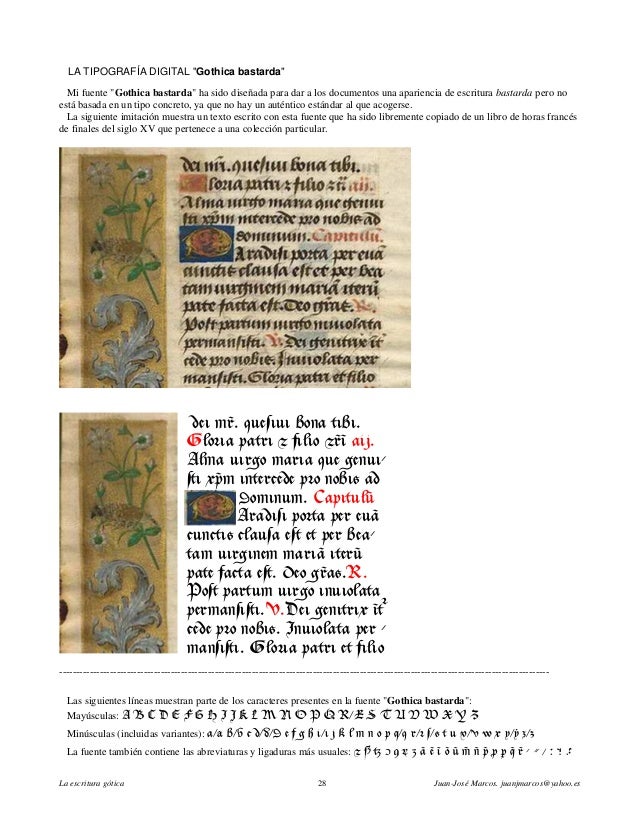 LA TIPOGRAFÍA DIGITAL "Gothica bastarda"
Mi fuente "Gothica bastarda" ha sido diseñada para dar a los documentos una apariencia de escritura bastarda pero no
está basada en un tipo concreto, ya que no hay un auténtico estándar al que acogerse.
La siguiente imitación muestra un texto escrito con esta fuente que ha sido libremente copiado de un libro de horas francés
de finales del siglo XV que pertenece a una colección particular.
dei mr̄. quesiui bona tibi.
Gloria patri ⁊ filio ⁊ aij.
Alma uirgo maria que genui
sti xp̄m intercede pro nobis ad
dominum. Capitulū
Aradisi porta per euā
cunctis clausa est et per bea
tam uirginem mariā iterū
pate facta est. Deo gr̄as. R.
Post partum uirgo inuiolata
permansisti. V. Dei genitrix īt
cede pro nobis. Inuiolata per
mansisti. Gloria patri et filio
dei mr̄. quesiui bona tibi.
Gloria patri ⁊ filio ⁊ aij.
Alma uirgo maria que genui⸗
sti xp̄m intercede pro nobis ad
Dominum. Capitulū
Aradisi porta per euā
cunctis clausa est et per bea⸗
tam uirginem mariā iterū
pate facta est. Deo gr̄as. R.
Post partum uirgo inuiolata
permansisti. V. Dei genitrix īt
cede pro nobis. Inuiolata per ⸗
mansisti. Gloria patri et filio
Las siguientes líneas muestran parte de los caracteres presentes en la fuente "Gothica bastarda":
Mayúsculas: A B C D E F G H I J K L M N O P Q R/R S T U V W X Y Z
Minúsculas (incluidas variantes): a/a b/b c d/d/d e f g h i/i j k l m n o p q/q r/r ſ/s t u v/v w x y/y z/z
La fuente también contiene las abreviaturas y ligaduras más usuales:
La escritura gótica 28 Juan-José Marcos. juanjmarcos@yahoo.es